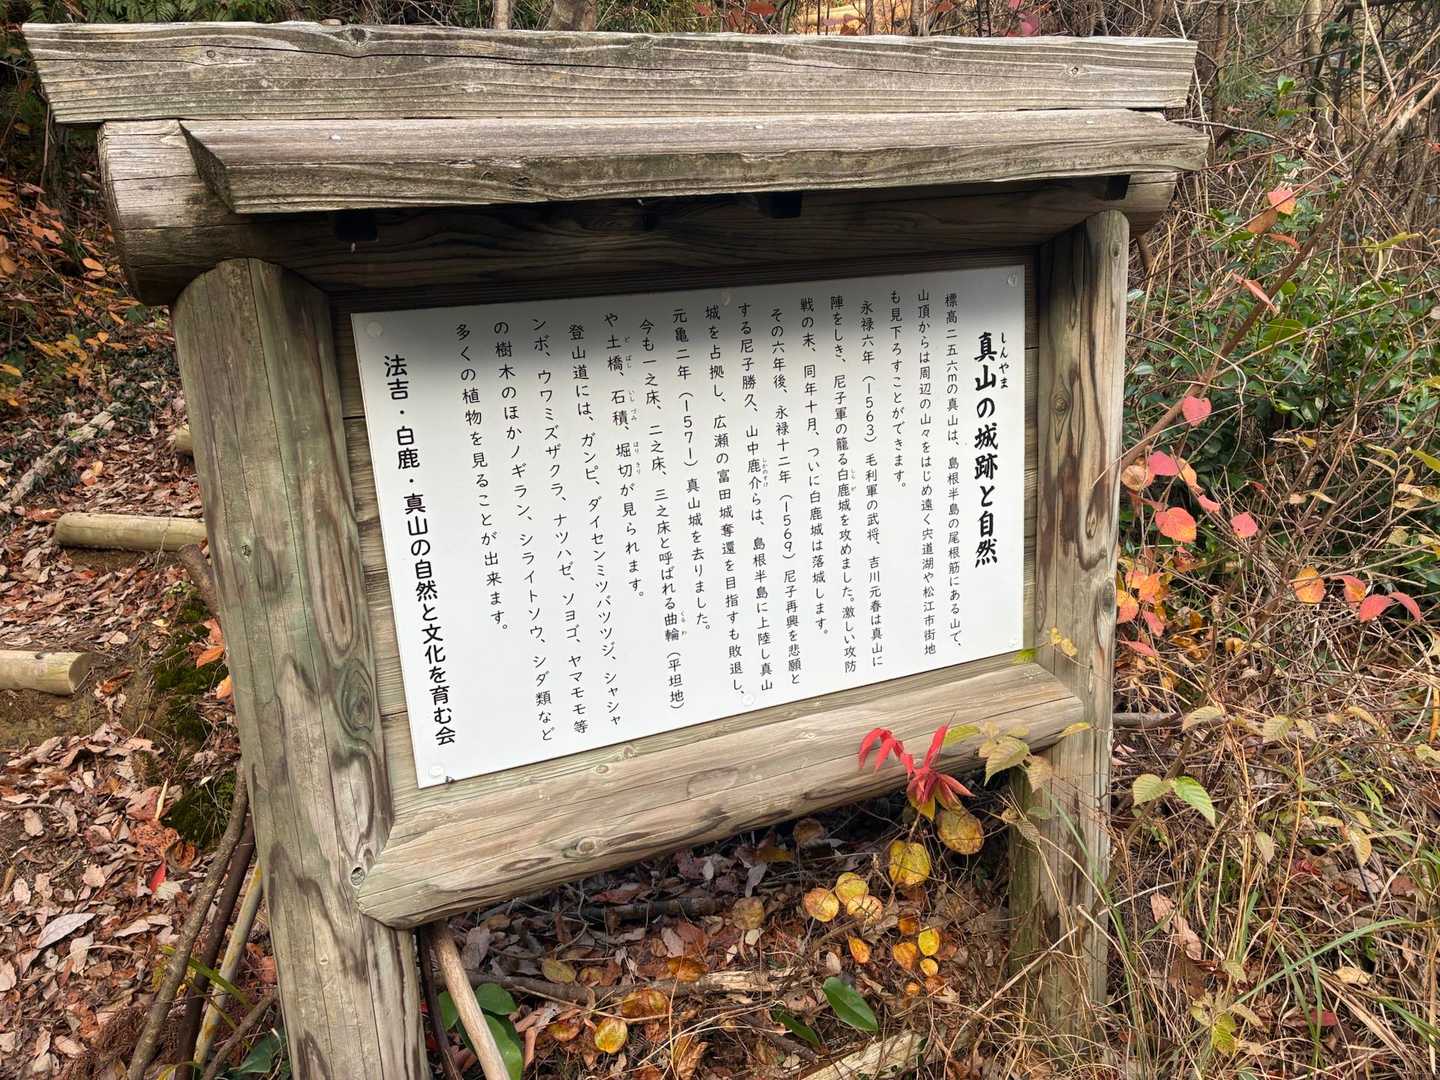 真山の城跡と自然
しんやま
標高二五六mの真山は、島根半島の尾根筋にある山で、
山頂からは周辺の山々をはじめ遠く宍道湖や松江市街地
も見下ろすことができます。
永禄六年(1563)毛利軍の武将、吉川元春は真山に
陣をしき、尼子軍の籠る白鹿城を攻めました。激しい攻防
しらが
戦の末、同年十月、ついに白鹿城は落城します。
その六年後、永禄十二年(1569)尼子再興を悲願と
する尼子勝久、山中鹿介らは、島根半島に上陸し真山
しかのすけ
城を占拠し、広瀬の富田城奪還を目指すも敗退し、
元亀二年(1571)真山城を去りました。
今も一之床、二之床、三之床と呼ばれる曲輪(平坦地)
くるわ
や土橋、石積、堀切が見られます。
どばし いしづみ ほりきり
登山道には、ガンピ、ダイセンミツバツツジ、シャシャ
ンボ、ウワミズザクラ、ナツハゼ、ソヨゴ、ヤマモモ等
の樹木のほかノギラン、シライトソウ、シダ類など
多くの植物を見ることが出来ます。
法吉・白鹿・真山の自然と文化を育む会